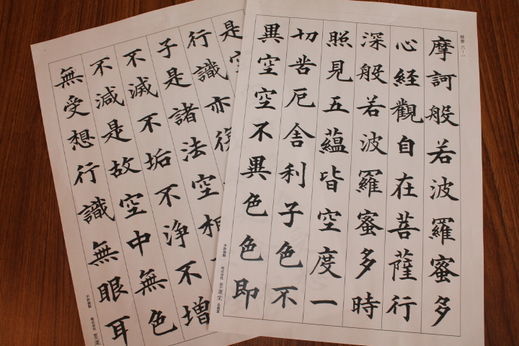 摩訶般若波羅蜜多
心經觀自在菩薩行
深般若波羅蜜多時
照見五蘊皆空度一
切苦厄舎利子色不
異空空不異色色即
是空
行識亦復
子是諸法空相
不滅不垢不淨不增
不減是故空中無色
無受想行識無眼耳